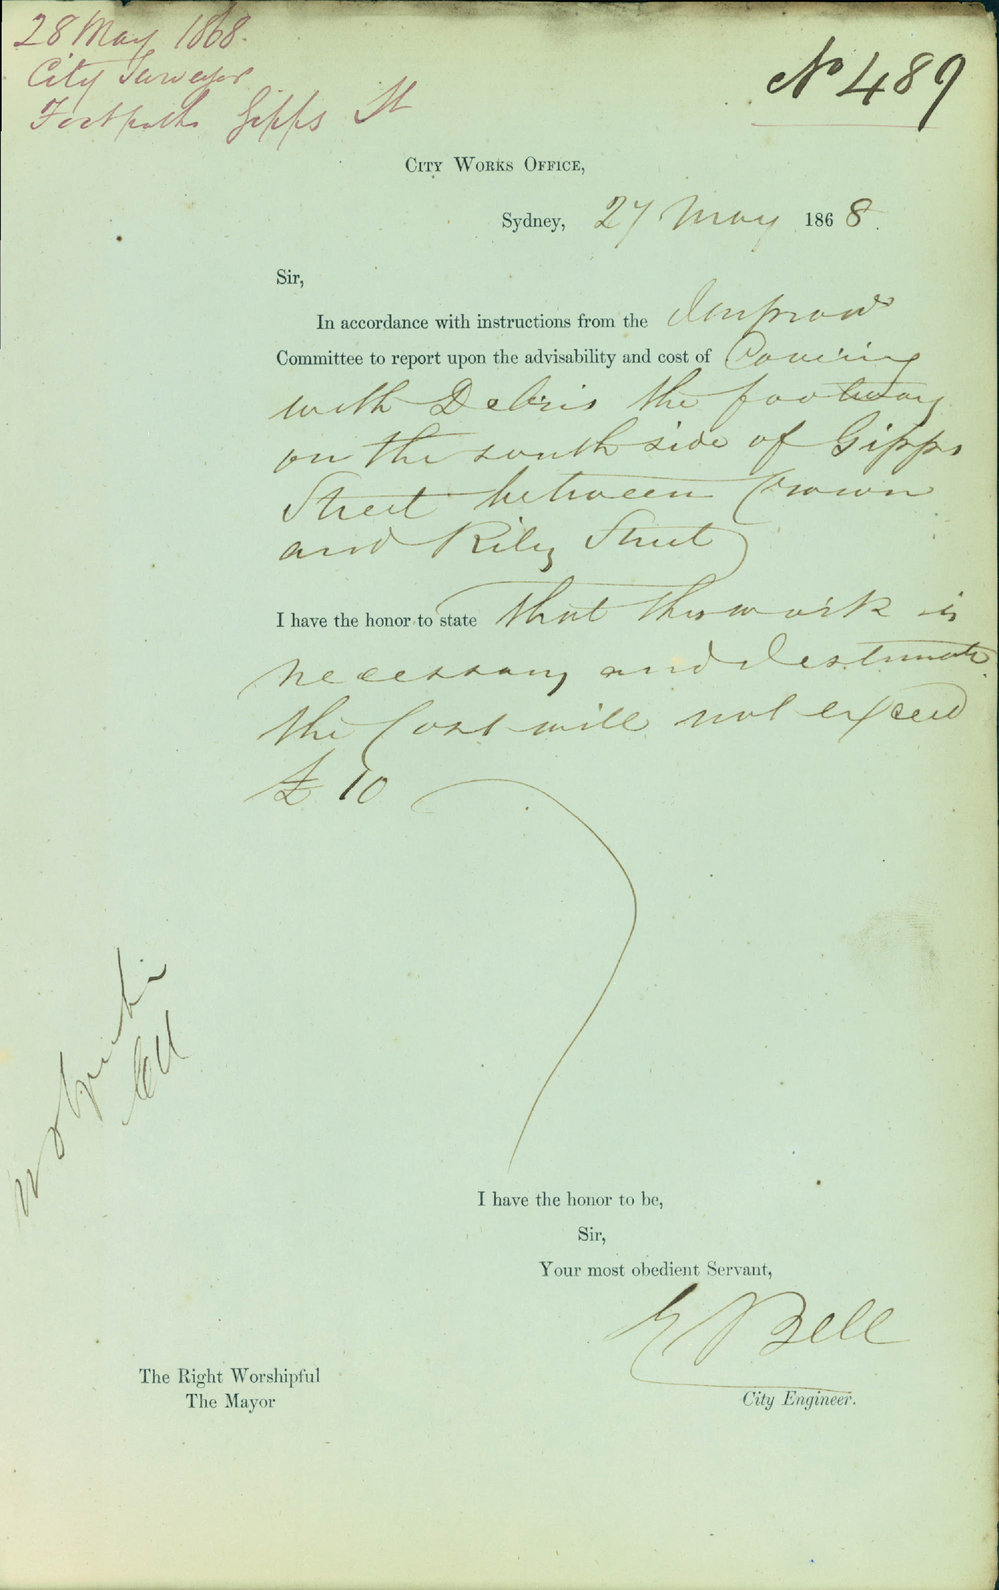 28 May 1868.
City Surveyor
Footpath Gipps St
No 489
CITY WORKS OFFICE,
Sydney, 27 May 1868.
Sir,
In accordance with instructions from the Improvt
Committee to report upon the advisability and cost of Covering
with Debris the footway
on the south side of Gipps
Street between Crown
and Riley Street
I have the honor to state that this work is
necessary and I estimate
the Cost will not exceed
£10
I have the honor to be,
Sir,
Your most obedient Servant,
E Bell
City Engineer.
The Right Worshipful
The Mayor